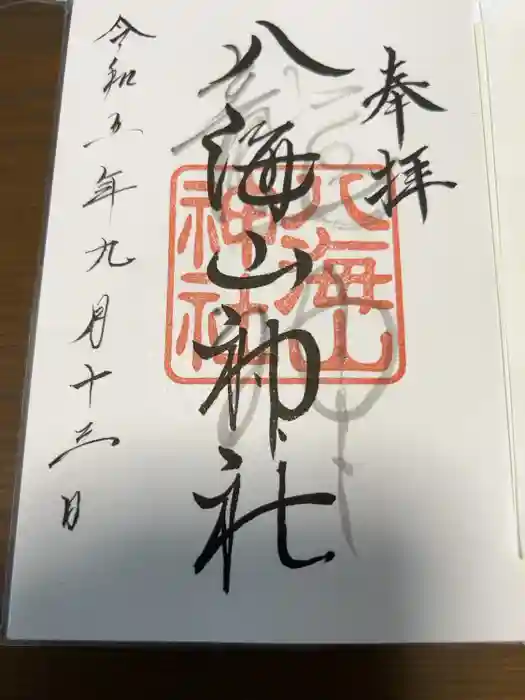 奉拝
八海山神社
八海山
神社
令和五年九月十三日